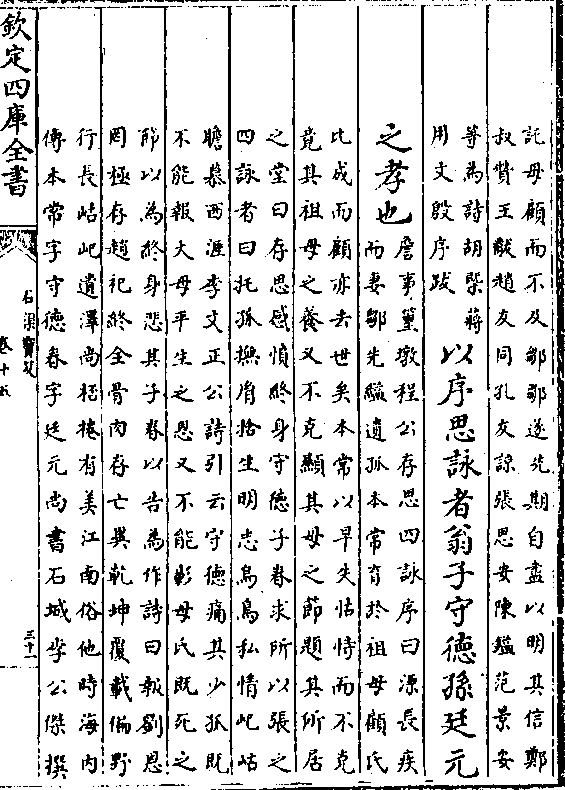 託母顧而不及鄒鄒遂先期自盡以明其信鄭
叔贊王黻趙友同孔友諒張思安陳鑑范景安
等為詩胡槩蔣
用文殷序跋
以序思詠者翁子守德孫廷元
之孝也
詹事篁墩程公存思四詠序曰源長疾
而妻鄒先縊遺孤本常育於祖母顧氏
比成而顧亦去世矣本常以早失怙恃而不克
竟其祖母之養又不克顯其母之節題其所居
之堂曰存思感憤終身守德子春求所以張之
四詠者曰托孤撫育捨生明志烏鳥私情屺岵
瞻慕西涯李文正公詩引云守德痛其少孤既
不能報大母平生之恩又不能彰母氏既死之
節以為終身悲其子春以告為作詩曰報劉恩
罔極存趙祀終全骨肉存亡異乾坤覆載偏野
行長岵屺遺澤尚桮棬有美江南俗他時海内
傳本常字守德春字廷元尚書石城李公傑撰
欽定四庫全書
石渠寶笈
卷十五
三十一